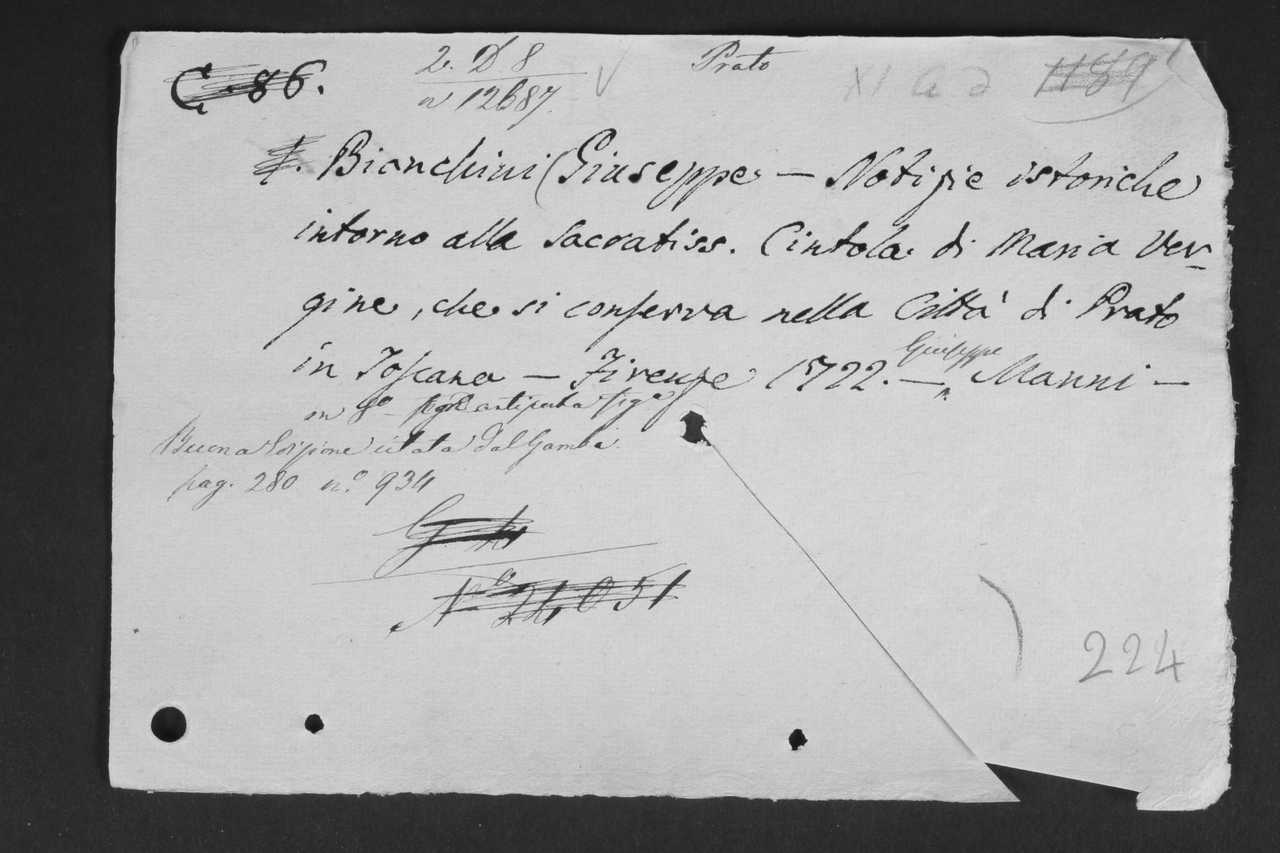 C. 86.
2. D 8
a 12687.
Prato
XI a 2 1189
4. Bianchini (Giuseppe - Notizie istoriche
intorno alla Sacratiss. Cintola di Maria Ver-
gine, che si conserva nella Città di Prato
in Toscana - Firenze 1722. - Giuseppe Manni -
in 4º
Buona Edizione citata dal Gamba
pag. 280 n.º 934
Nº 24,051
224